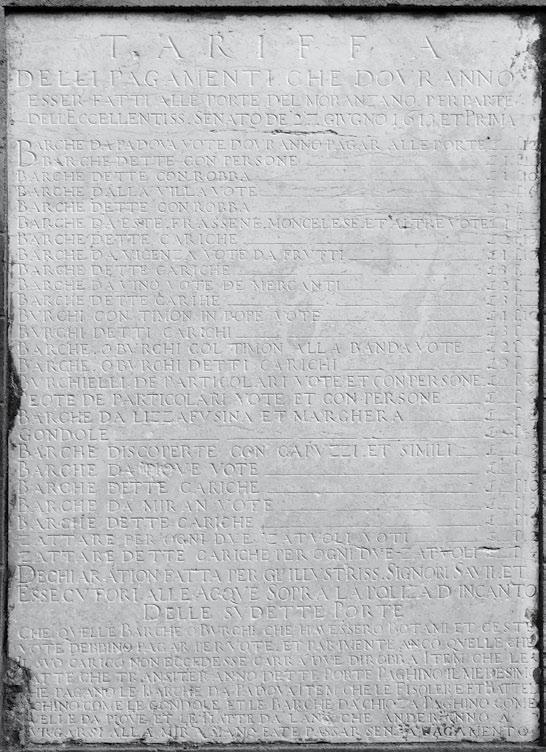 TARIFFA
DELLI PAGAMENTI CHE DOVRANNO
ESSER FATTI ALLE PORTE DEL MORANZANO PER PARTE
DELL ECCELLENTISS. SENATO DE 27 GIVGNO 1613 ET PRIMA
BARCHE DA PADOVA VOTE DOVRANNO PAGAR ALLE PORTE
BARCHE DETTE CON PERSONE
BARCHE DETTE CON ROBBA
BARCHE DALLA VILLA VOTE
BARCHE DETTE CON ROBBA
BARCHE DA ESTE, FRASSENE, MONCELESE, ET ALTRE VOTE
BARCHE DETTE CARICHE
BARCHE DA VICENZA VOTE DA FRVTTI
BARCHE DETTE CARICHE
BARCHE DA VINO VOTE DE MERCANTI
BARCHE DETTE CARIHE
BVRCHI CON TIMON IN POPE VOTE
BVRCHI DETTI CARICHI
BARCHE, O BVRCHI COL TIMON ALLA BANDA VOTE
BARCHE, O BVRCHI DETTI CARICHI
BVRCHIELLI DE PARTICOLARI VOTE ET CON PERSONE
PEOTE DE PARTICOLARI VOTE ET CON PERSONE
BARCHE DA LIZZAFVSINA ET MARGHERA
GONDOLE
BARCHE DISCOPERTE CON CAPVZZI, ET SIMILI
BARCHE DA PIOVE VOTE
BARCHE DETTE CARICHE
BARCHE DA MIRAN VOTE
BARCHE DETTE CARICHE
ZATTARE PER OGNI DVE ZATVOLI VOTI
ZATTARE DETTE CARICHE PER OGNI DVE ZATTOLI
DECHIARATION FATTA PER GL'ILLVSTRISS. SIGNORI SAVII, ET
ESSECVTORI ALLE ACQVE SOPRA LA POLIZA D'INCANTO
DELLE SVDETTE PORTE
CHE QVELLE BARCHE O BVRCHI CHE HAVESSERO BOTAMI, ET CESTE
VOTE DEBBINO PAGAR PER VOTE, ET PARIMENTE ANCO QVELLE CHE
CARICO NON ECCEDESSE CARRA DVE DI ROBBA ITEM CHE LE
CHE TRANSITERANNO DETTE PORTE PAGHINO IL MEDESIMO
CHE PAGANO LE BARCHE DA PADOVA ITEM CHE LE FISOLERE ET BATTELLI
PAGHINO COME LE GONDOLE ET LE BARCHE DA CHIOZA PAGHINO COME
QVELLE DA PIOVE, ET LE PIATTE DA LANE CHE ANDERANNO A
PVRGARSI ALLA MIRA SIANO FATE PASSAR SENZA PAGAMENTO